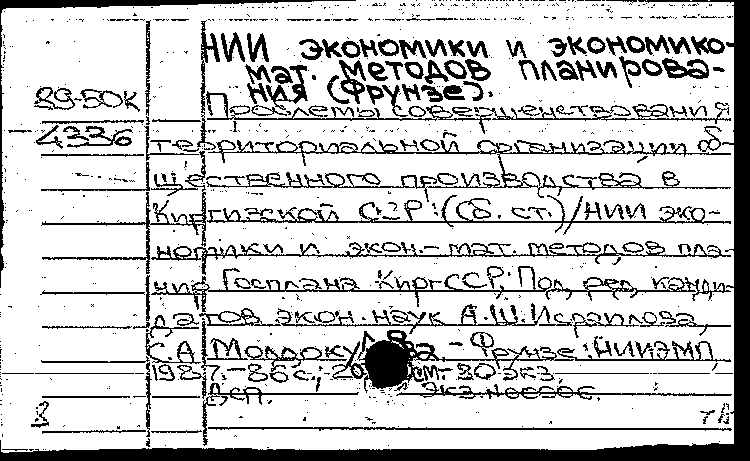 НИИ экономики и экономико-
мат. методов планирова-
ния (Фрунзе).
89-50К
Проблемы совершенствования
4336
территориальной организации об-
щественного производства в
Киргизской ССР: (Сб. ст.)/НИИ эко-
номики и экон.-мат. методов пла-
нир Госплана КиргССР; Под ред. канди-
датов экон. наук А.Ш.Исраилова,
С.А Молдоку - Фрунзе: НИИЭМП,
1987.-86 с.; 20 см.- 80 экз.
Дсп. Экз.